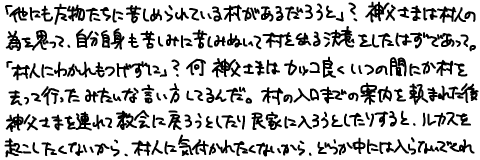 「他にも魔物たちに苦しめられている村があるだろうと」？神父さまは村人の
為を思って、自分自身も苦しみに苦しみぬいて村を出る決意をしたはずであって。
「村人にわかれもつげずに」？何 神父さまはカッコ良くいつの間にか村を
去って行ったみたいな言い方してるんだ。村の入口までの案内を頼まれた後
神父さまを連れて教会に戻ろうとしたり民家に入ろうとしたりすると、ルカスを
起こしたくないから、村人に気付かれたくないから、どうか中には入らないでくれ